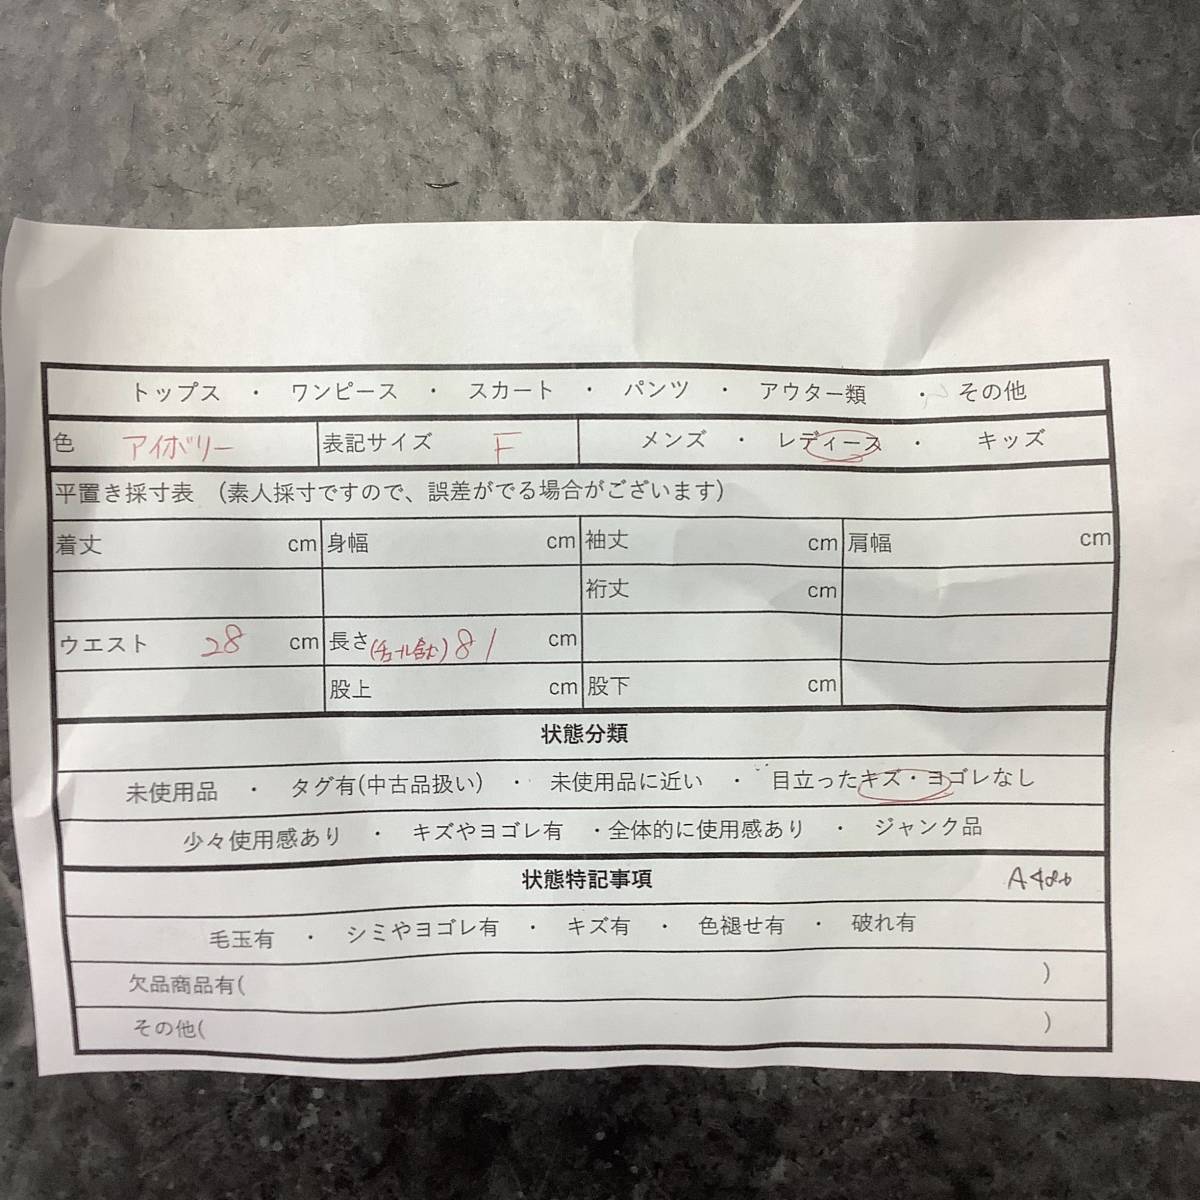 トップス ・ ワンピース ・ スカート ・ パンツ ・ アウター類 ・ その他
色 アイボリー 表記サイズ F メンズ ・ レディース ・ キッズ
平置き採寸表 （素人採寸ですので、誤差がでる場合がございます）
着丈 cm 身幅 cm 袖丈 cm 肩幅 cm
裄丈 cm
ウエスト 28 cm 長さ(チュール含む) 81 cm
股上 cm 股下 cm
状態分類
未使用品 ・ タグ有(中古品扱い) ・ 未使用品に近い ・ 目立ったキズ・ヨゴレなし
少々使用感あり ・ キズやヨゴレ有 ・全体的に使用感あり ・ ジャンク品
状態特記事項
毛玉有 ・ シミやヨゴレ有 ・ キズ有 ・ 色褪せ有 ・ 破れ有
欠品商品有( )
その他( )